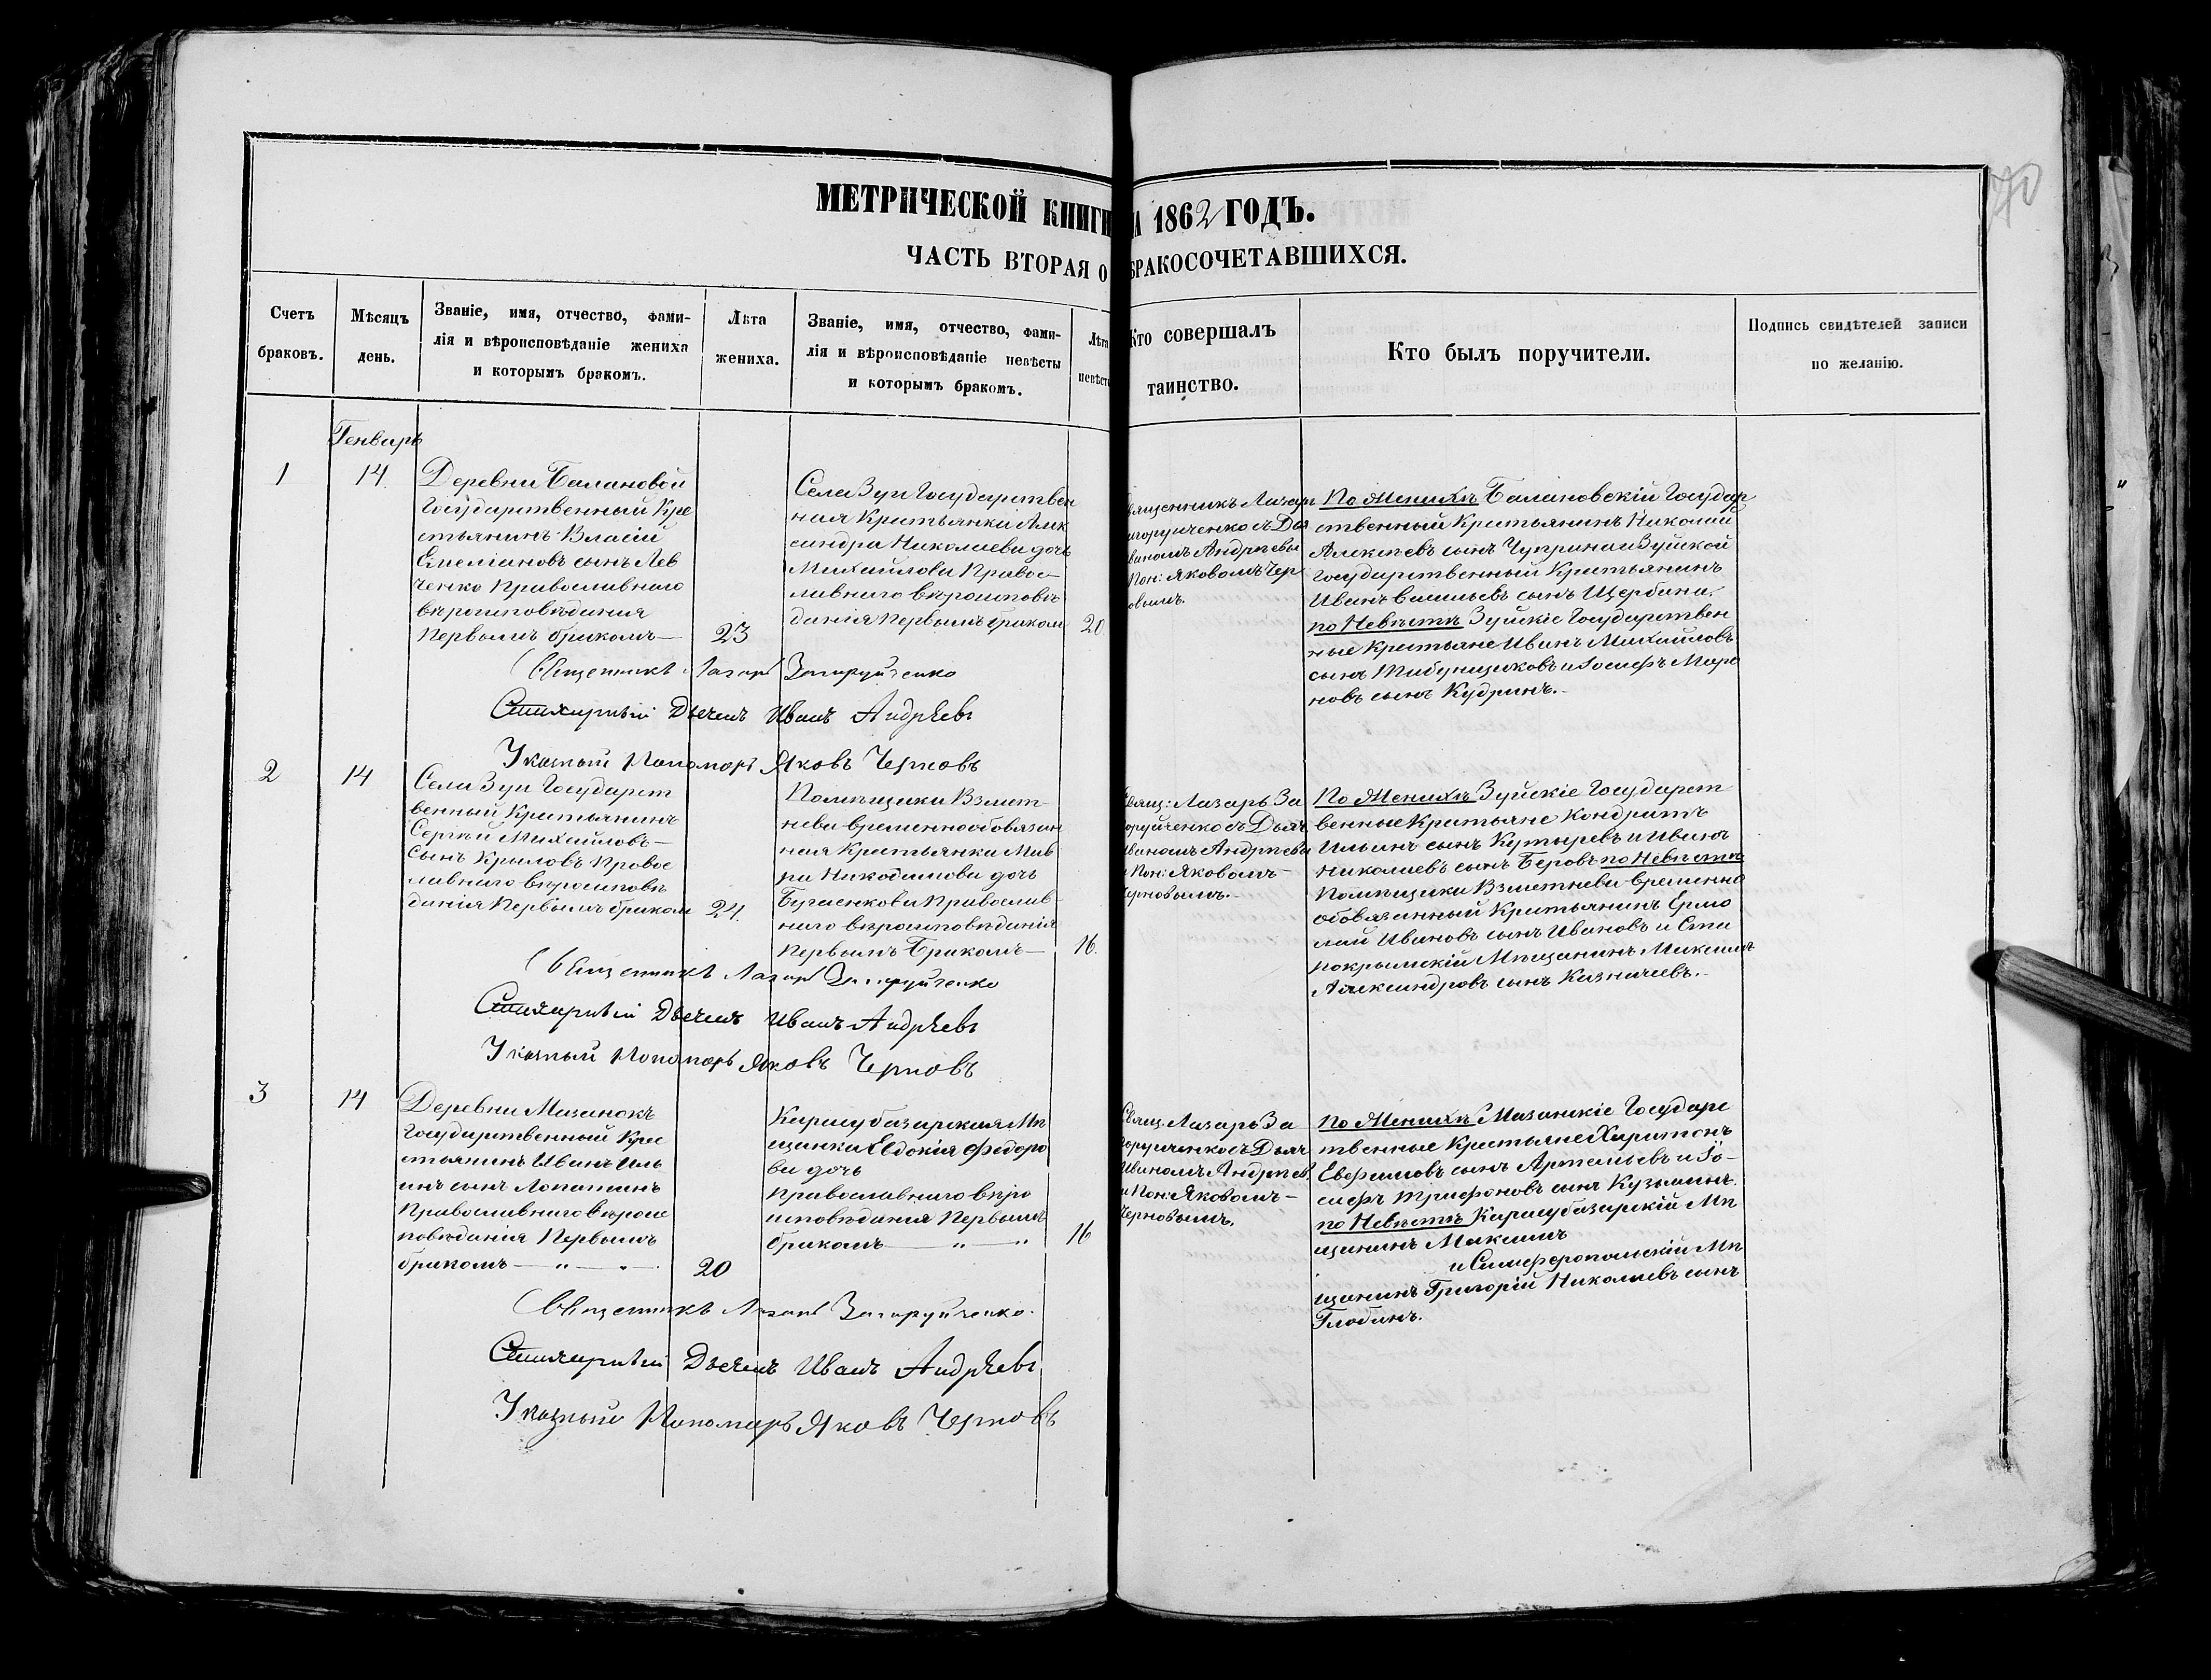 МЕТРИЧЕСКОЙ КНИГИ
А 1862 ГОДЪ.
ЧАСТЬ ВТОРАЯ О
БРАКОСОЧЕТАВШИХСЯ.
Счетъ
браковъ.
Мѣсяцъ
день.
Званіе, имя, отчество, фами-
лія и вѣроисповѣданіе жениха
и которымъ бракомъ.
Лѣта
жениха.
Званіе, имя, отчество, фами-
лія и вѣроисповѣданіе невѣсты
и которымъ бракомъ.
Лѣта
невѣст
Кто совершалъ
таинство.
Кто былъ поручители.
Подпись свидѣтелей записи
по желанію.
70
Генварь
1
14
Деревни Балановой
Государственный Кре
стьянинъ Власій
Емеліановъ сынъ Лев
ченко Православнаго
вѣроисповѣданія
Первымъ бракомъ—
23
Села Зуи Государствен
ная Крестьянка Алек
сандра Николаева дочь
Михайлова Правос-
лавнаго вѣроисповѣ
данія Первымъ браком
20
вященникъ Лазарь
агоруйченко съ Дья
Иваномъ Андреевы
Пон: Яковомъ Чер
овымъ.
По Женихѣ Балановскій Государ
ственный Крестьянинъ Николай
Алексѣевъ сынъ Чуприна и Зуйской
Государственный Крестьянинъ
Иванъ Васильевъ сынъ Щербина,
по Невѣстѣ Зуйскіе Государствен
ные Крестьяне Иванъ Михайловъ
сынъ Табунщиковъ и Іосифъ Маро
новъ сынъ Кудринъ.-
Священникъ Лазарь Загоруйченко
Стихарный Дьячекъ Иванъ Андрѣевъ
Указный Пономарь Яковъ Черновъ
2
14
Села Зуи Государст
венный Крестьянинъ
Сергѣй Михайловъ—
сынъ Крыловъ Правос
лавнаго вѣроисповѣ
данія Первымъ браком
24.
Помѣщика Взмет
нева временнообовязан
ная Крестьянка Мав
ра Никодимова дочь
Бугаенкова Православ-
наго вѣроисповѣданія
Первымъ Бракомъ—
16.
Свящ: Лазарь За
оруйченко съ Дьяч.
Иваномъ Андреевы
и Пон: Яковомъ-
Черновымъ.
По Женихѣ Зуйскіе Государст
венные Крестьяне Кондратъ
Ильинъ сынъ Кутыревъ и Иванъ
Николаевъ сынъ Беровъ по Невѣстѣ
Помѣщика Взметнева временно
обовязанный Крестьянинъ Ермо
лай Ивановъ сынъ Ивановъ и Ста
рокрымскій Мѣщанинъ Максимъ
Александровъ сынъ Казначеевъ.-
Священникъ Лазарь Загоруйченко
Стихарный Дьячекъ Иванъ Андрѣевъ
Указный Пономарь Яковъ Черновъ
3
14
Деревни Мазанокъ
Государственный Крес
тьянинъ Иванъ Иль
инъ сынъ Лопатинъ
Православнаго вѣроис
повѣданія Первымъ
бракомъ — „ — „ —
20
Карасубазарская Мѣ
щанка Евдокія Федоро
ва дочь
православнаго вѣро
исповѣданія Первымъ
бракомъ — „ — „
16
Свящ. Лазарь За
горуйченко съ Дьяч
Иваномъ Андреев.
и Пон: Яковомъ-
Черновымъ.
По Женихѣ Мазанскіе Государс
твенные Крестьяне Харитонъ
Евфимовъ сынъ Артемьевъ и Іо-
сифъ Трифоновъ сынъ Кузьминъ.
по Невѣстѣ Карасубазарскій Мѣ
щанинъ Максимъ
и Симферопольскій Мѣ
щанинъ Григорій Николаевъ сынъ
Глобинъ.
Священникъ Лазарь Загоруйченко.
Стихарный Дьячекъ Иванъ Андрѣевъ
Указный Пономарь Яковъ Черновъ